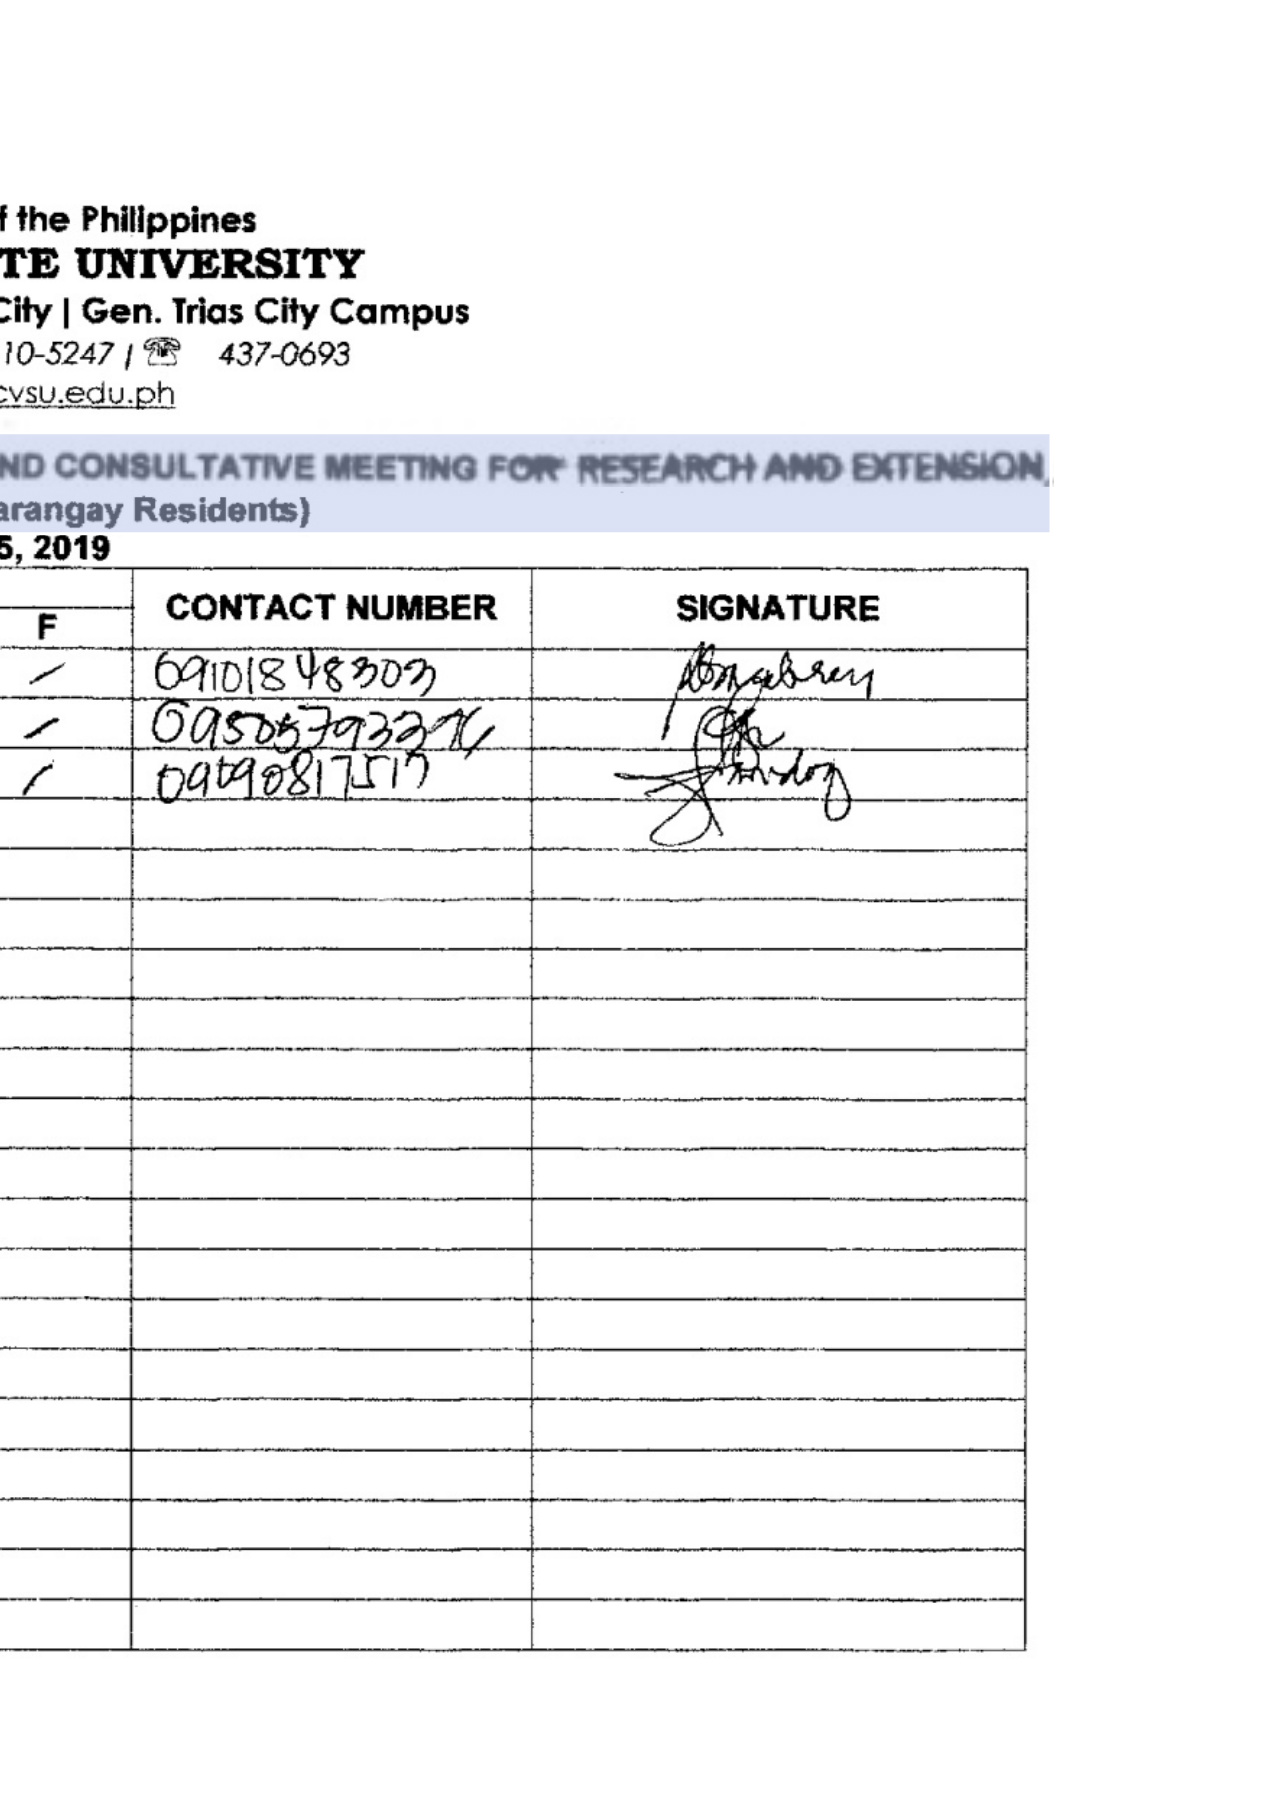 f the Philippines
TE UNIVERSITY
City | Gen. Trias City Campus
10-5247 | ☏ 437-0693
cvsu.edu.ph
ND CONSULTATIVE MEETING FOR RESEARCH AND EXTENSION,
arangay Residents)
5, 2019
CONTACT NUMBER SIGNATURE
F
09101848303
09090817517